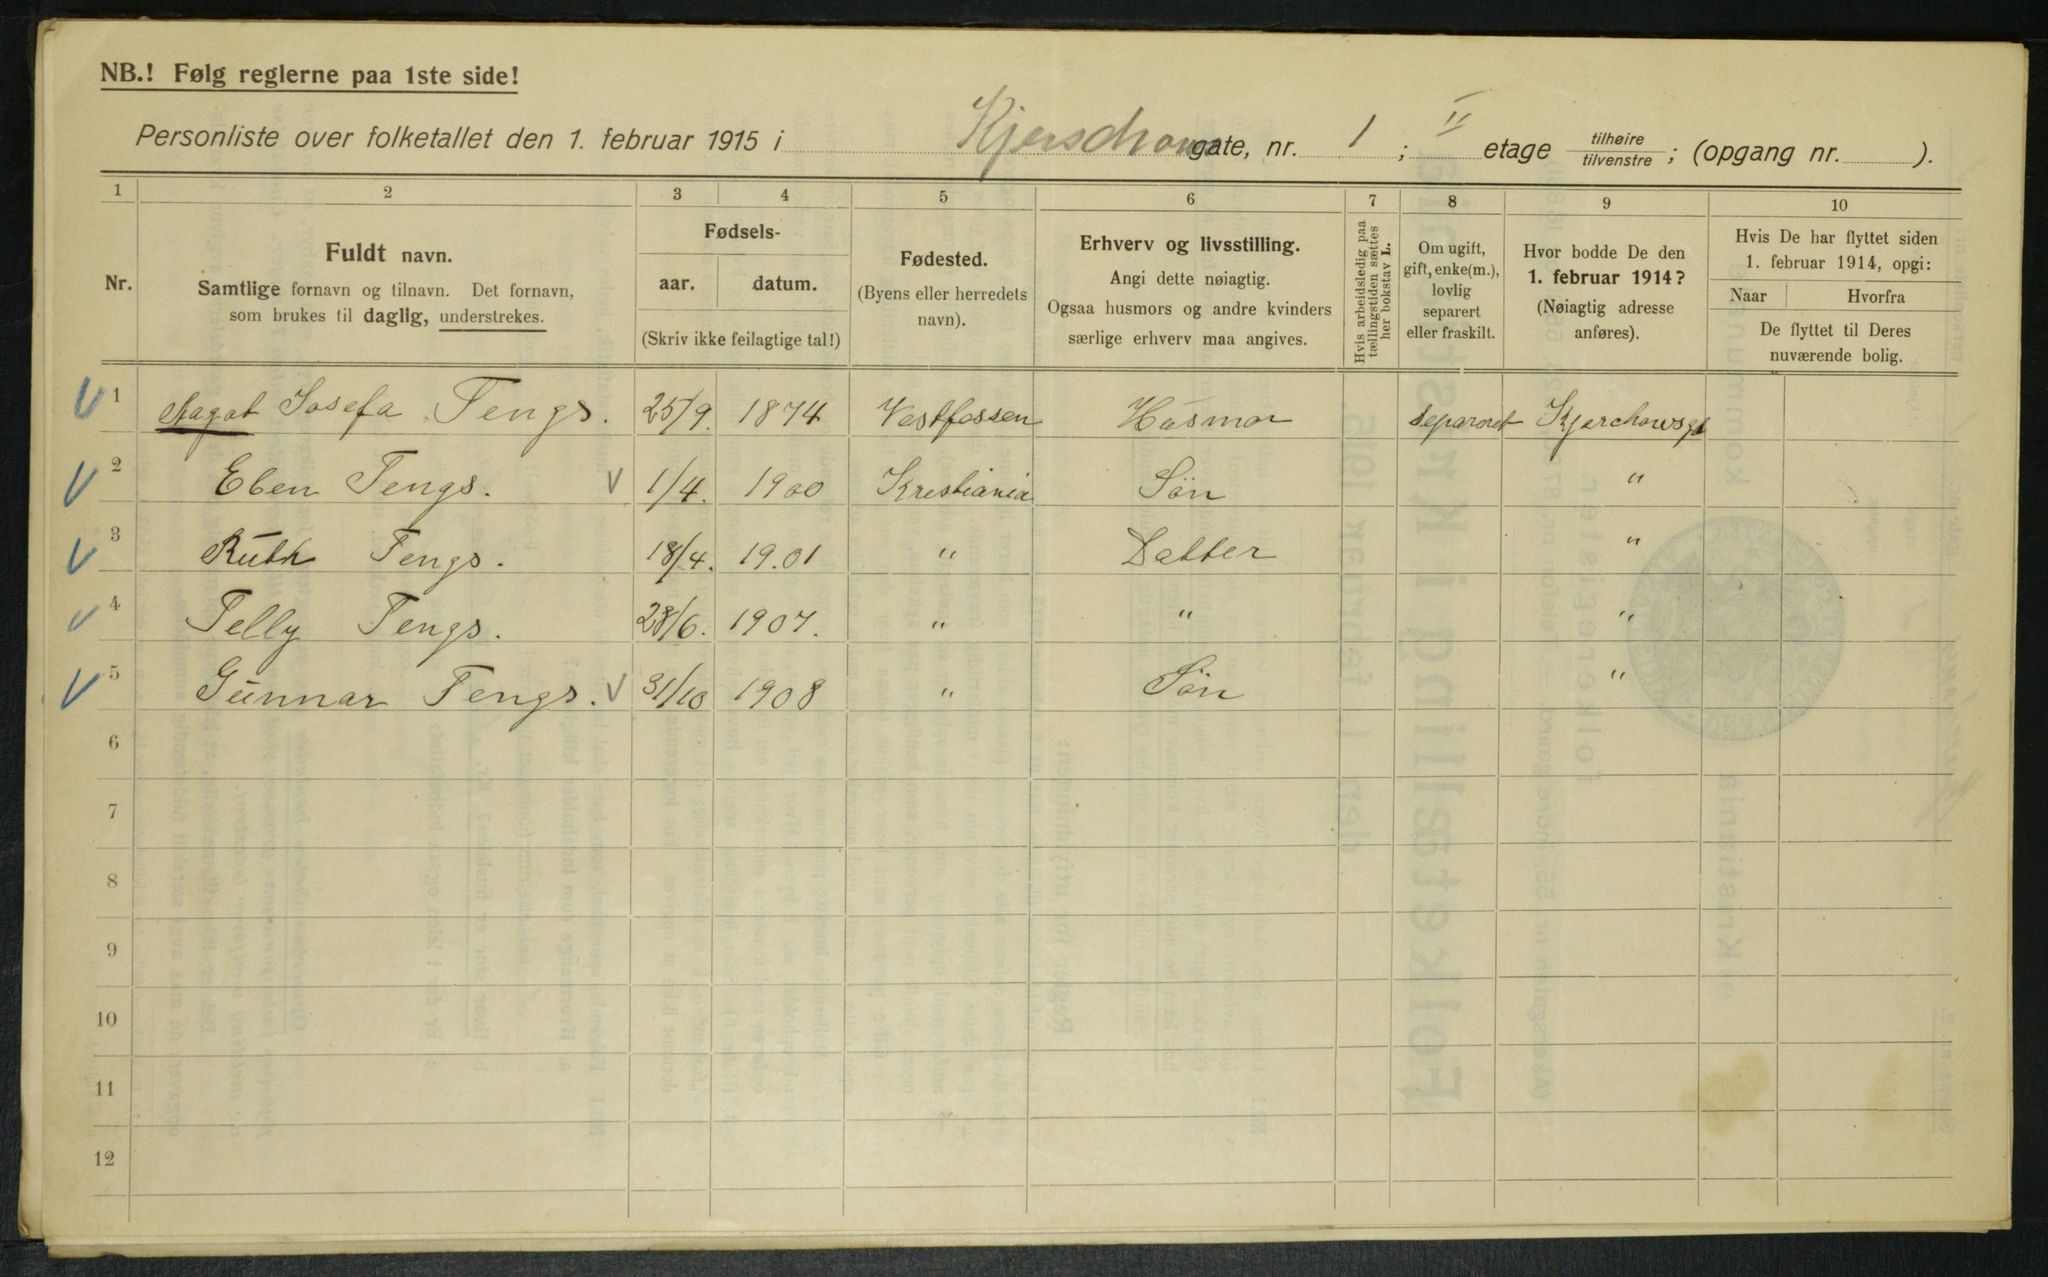 NB.! Følg reglerne paa 1ste side!
Personliste over folketallet den 1. februar 1915 i Kjerschows gate, nr. 1 ; II etage tilhøire/tilvenstre ; (opgang nr. ).
1 2 3 4 5 6 7 8 9 10
Nr.
Fuldt navn.
Samtlige fornavn og tilnavn. Det fornavn,
som brukes til daglig, understrekes.
Fødsels-
aar. datum.
(Skriv ikke feilagtige tal!)
Fødested.
(Byens eller herredets
navn).
Erhverv og livsstilling.
Angi dette nøiagtig.
Ogsaa husmors og andre kvinders
særlige erhverv maa angives.
Hvis arbeidsledig paa
tællingstiden sættes
her bokstav L.
Om ugift,
gift, enke(m.),
lovlig
separert
eller fraskilt.
Hvor bodde De den
1. februar 1914?
(Nøiagtig adresse
anføres).
Hvis De har flyttet siden
1. februar 1914, opgi:
Naar Hvorfra
De flyttet til Deres
nuværende bolig.
1 Josefa Tengs. 25/9. 1874 Vestfossen Husmor separeret Kjerchowsg 1
2 Eben Tengs. 1/4. 1900 Kristiania Søn "
3 Ruth Tengs. 18/4. 19.01 " Datter "
4 Telly Tengs. 28/6. 1907. " " "
5 Gunnar Tengs. 31/10 1908 " Søn "
6
7
8
9
10
11
12